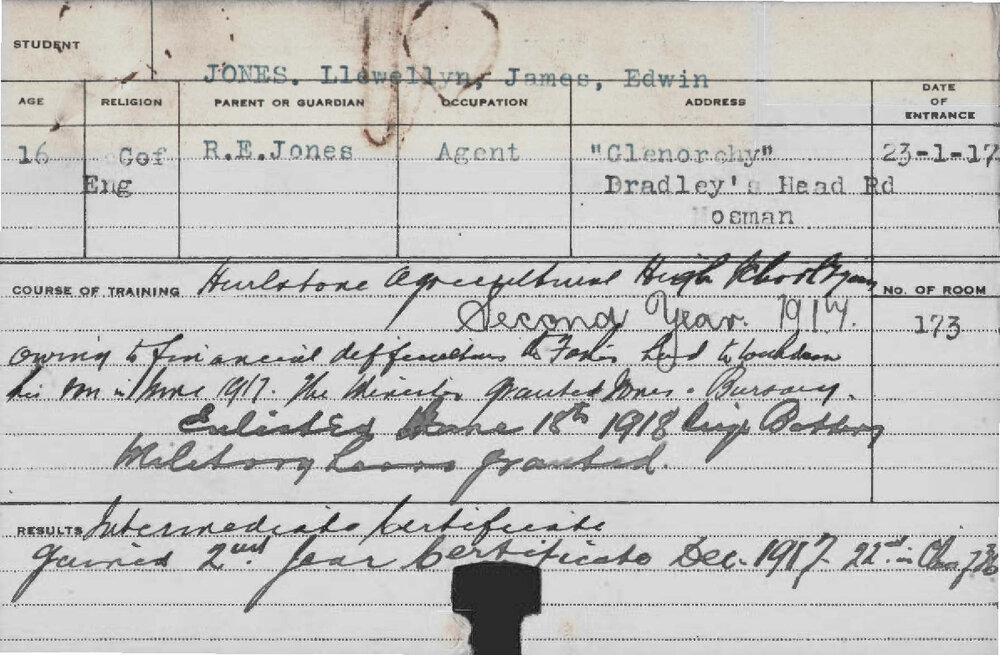 STUDENT
JONES. Llewellyn, James, Edwin
AGE RELIGION PARENT OR GUARDIAN OCCUPATION ADDRESS DATE OF ENTRANCE
16 Cof R.E.Jones Agent "Glenorchy" 23-1-17
Eng Bradley's Head Rd
Mosman
COURSE OF TRAINING Hurlstone Agricultural High School No. OF ROOM
Second Year. 1917. 173
owing to financial difficulties Father had to withdraw
his son in June 1917. The Minister granted Jones a Bursary.
Enlisted June 18th 1918 Battery
Military Leave granted.
RESULTS Intermediate Certificate
Gained 2nd Year Certificate Dec. 1917. 22nd in Class of